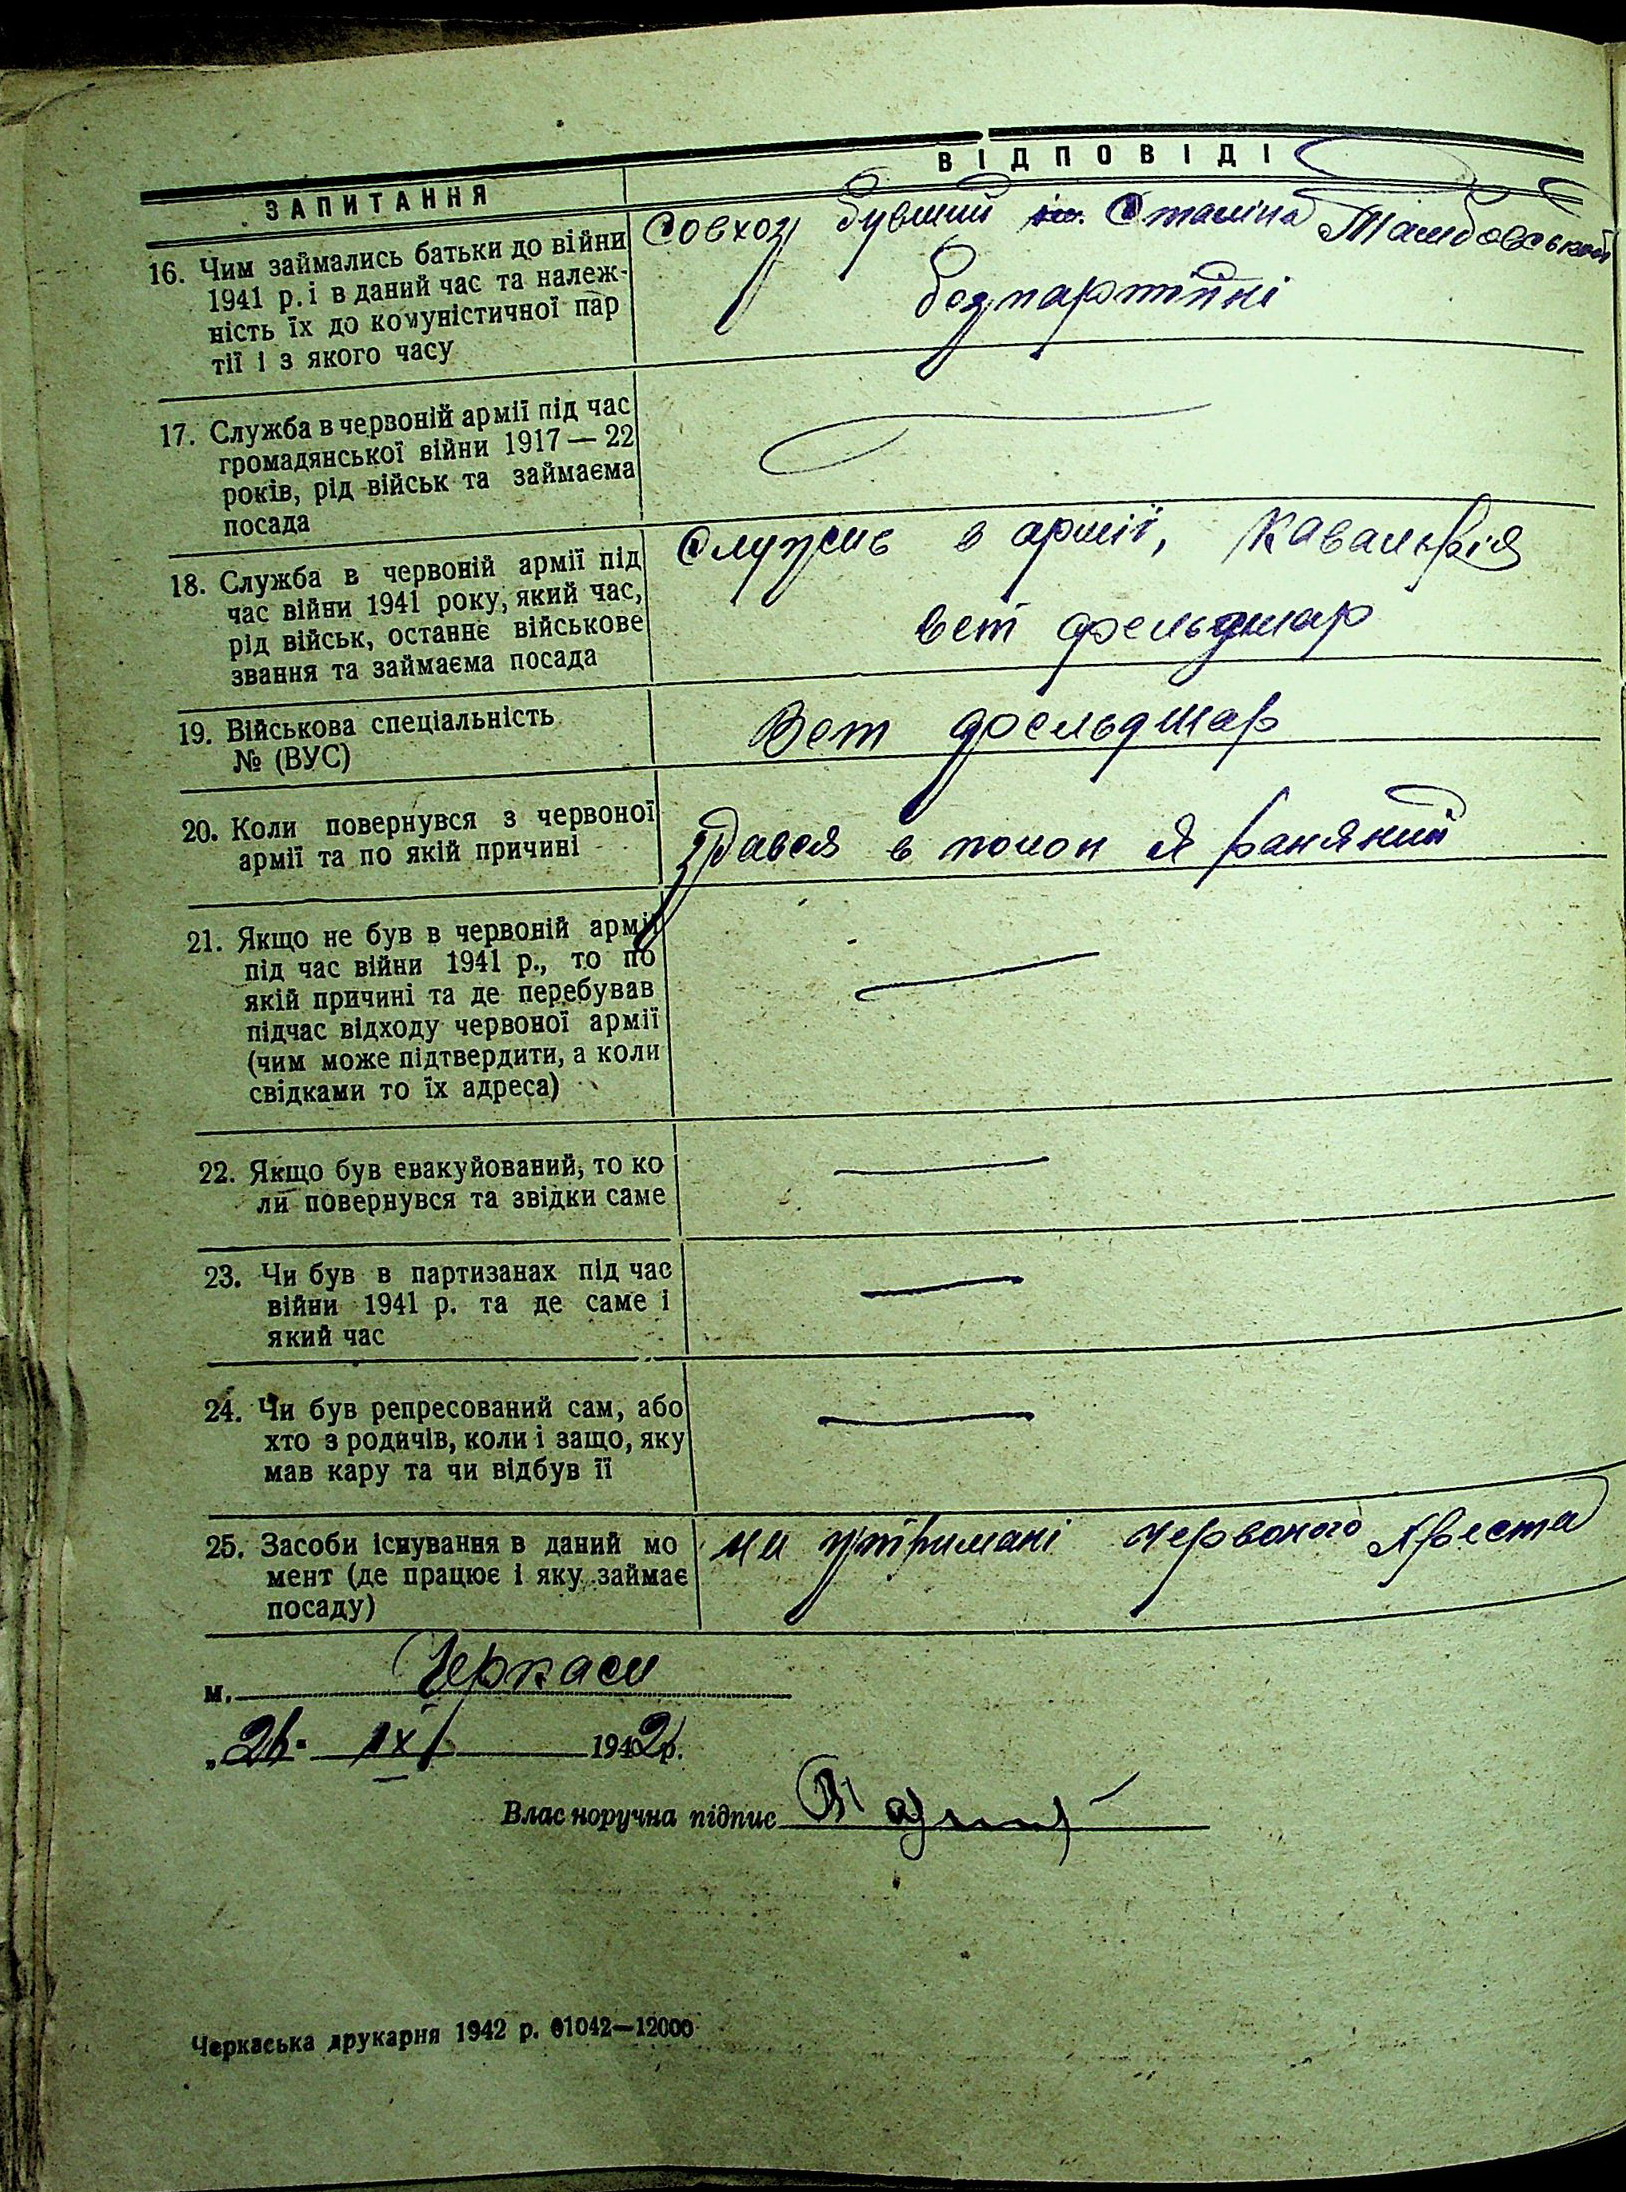 ЗАПИТАННЯ ВІДПОВІДІ
16. Чим займались батьки до війни
1941 р. і в даний час та належ-
ність їх до комуністичної пар
тії і з якого часу
Совхоз бувший ім. Сталіна Тамбовської
безпартійні
17. Служба в червоній армії під час
громадянської війни 1917 — 22
років, рід військ та займаєма
посада
18. Служба в червоній армії під
час війни 1941 року, який час,
рід військ, останнє військове
звання та займаєма посада
Служив в армії, Кавалерія
вет фельдшар
19. Військова спеціальність
№ (ВУС)
Вет фельдшар
20. Коли повернувся з червоної
армії та по якій причині
здався в полон я раняний
21. Якщо не був в червоній армії
під час війни 1941 р., то по
якій причині та де перебував
підчас відходу червоної армії
(чим може підтвердити, а коли
свідками то їх адреса)
22. Якщо був евакуйований, то ко
ли повернувся та звідки саме
23. Чи був в партизанах під час
війни 1941 р. та де саме і
який час
24. Чи був репресований сам, або
хто з родичів, коли і защо, яку
мав кару та чи відбув її
25. Засоби існування в даний мо
мент (де працює і яку займає
посаду)
на утримані червоного Креста
м. Черкаси
„26" 1942р.
Власноручна підпис
Черкаська друкарня 1942 р. 01042—12000